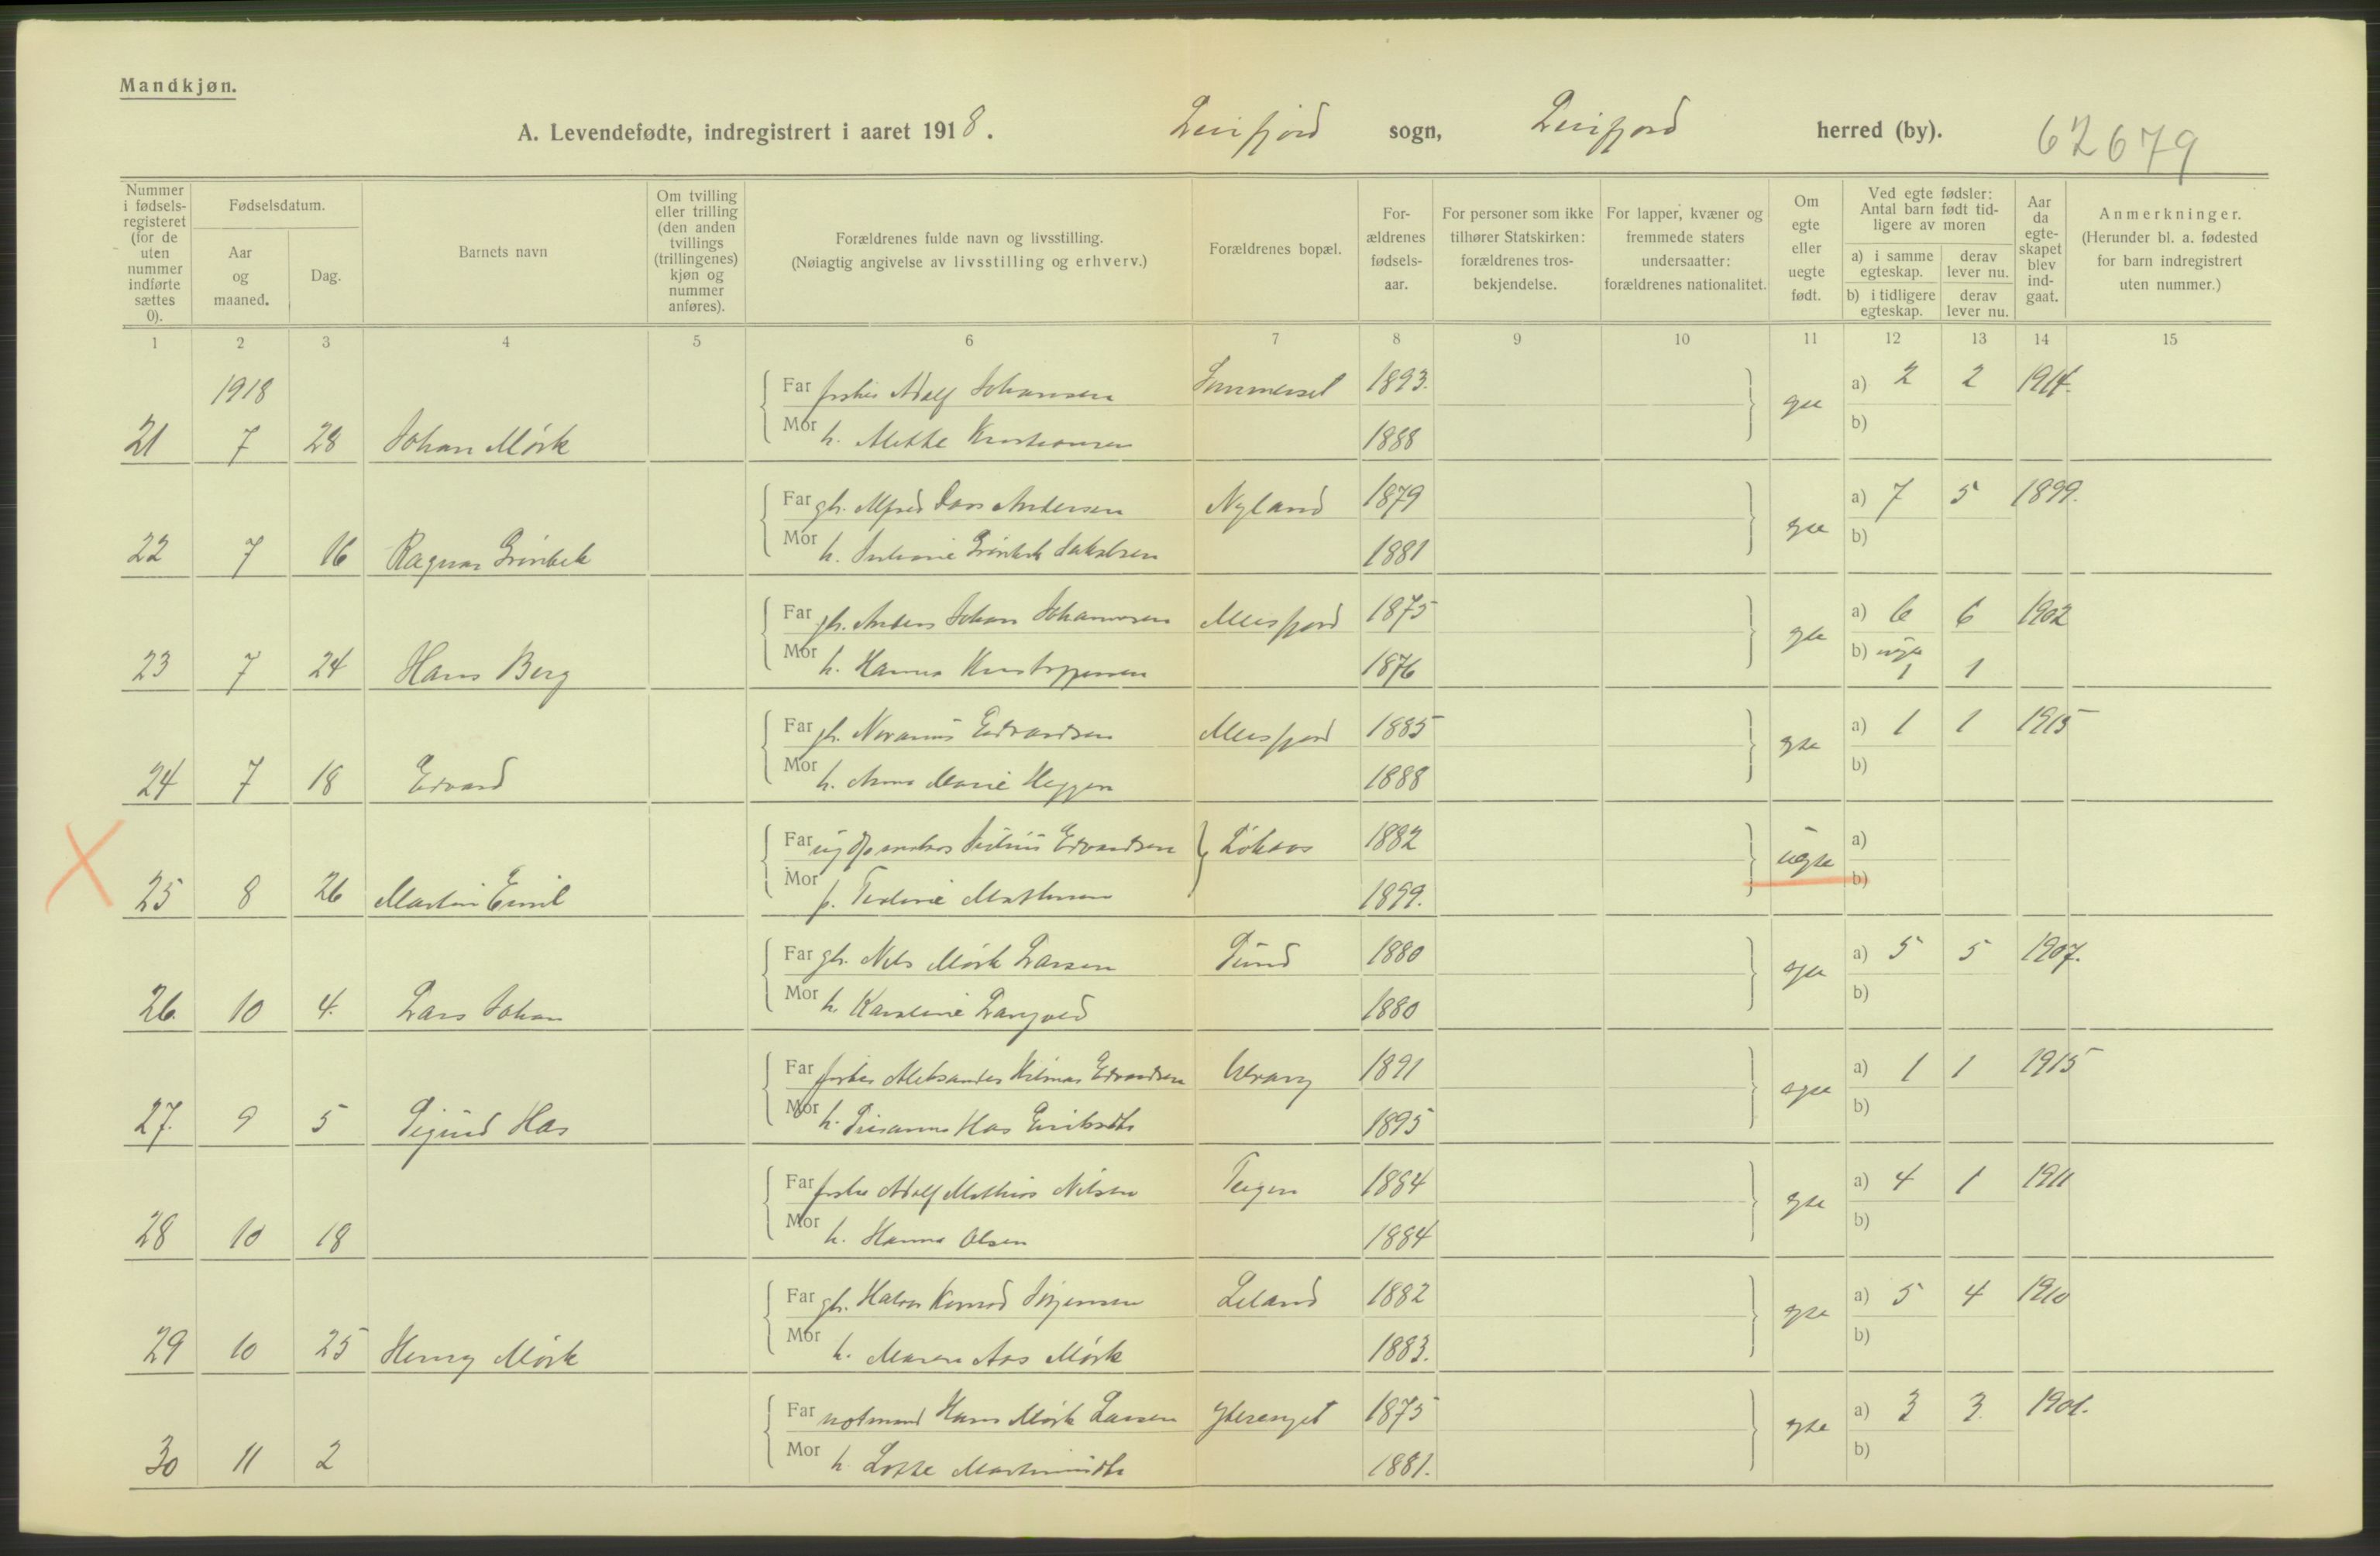 Mandkjøn.
A. Levendefødte, indregistrert i aaret 1918. Leirfjord sogn, Leirfjord herred (by). 62679
Nummer i fødselsregisteret (for de uten nummer indførte sættes 0).
Fødselsdatum.
Aar og maaned.
Dag.
Barnets navn
Om tvilling eller trilling (den anden tvillings (trillingenes) kjøn og nummer anføres).
Forældrenes fulde navn og livsstilling.
(Nøiagtig angivelse av livsstilling og erhverv.)
Forældrenes bopæl.
Forældrenes fødselsaar.
For personer som ikke tilhører Statskirken: forældrenes trosbekjendelse.
For lapper, kvæner og fremmede staters undersaatter: forældrenes nationalitet.
Om egte eller uegte født.
Ved egte fødsler: Antal barn født tidligere av moren
a) i samme egteskap. derav lever nu.
b) i tidligere egteskap. derav lever nu.
Aar da egteskapet blev indgaat.
Anmerkninger.
(Herunder bl. a. fødested for barn indregistrert uten nummer.)
1 2 3 4 5 6 7 8 9 10 11 12 13 14 15
1918
Far fisker Adolf Johansen 1893. a) 2 2 1914.
21 7 28 Johan Mørk Mor h. Mette Kristiansen 1888 egte b)
Far gb. Alfred Dass Andersen Nyland 1879 a) 7 5 1899.
22 7 16 Ragnar Grønbek Mor h. Grønbek Jakobsen 1881 egte b)
Far gb. Anders Johan Johannesen Meisfjord 1875 a) 6 6 1902
23 7 24 Hans Berg Mor h. Hanna Kristoffersen 1876 egte b) uegte 1 1
Far gb. Edvardsen Meisfjord 1885 a) 1 1 1915
24 7 18 Edvard Mor h. Anna Marie Heggen 1888 egte b)
Far Edvardsen 1882 a)
25 8 26 Martin Emil Mor p. Mathisen 1899. uegte b)
Far gb. Nils Mørk Larsen Sund 1880 a) 5 5 1907.
26 10 4. Lars Johan Mor h. Karoline Langved 1880 egte b)
Far fisker Aleksander Hilmar Edvardsen Leland 1891 a) 1 1 1915
27. 9 5 Sigurd Has Mor h. Susanna Has 1895 egte b)
Far fisker Adolf Mathias Nilsen Teigen 1884 a) 4 1 1911
28 10 18 Mor h. Hanna Olsen 1884 egte b)
Far gb. Konrad Jørgensen Leland 1882 a) 5 4 1910
29 10 25 Henry Mørk Mor h. Maren Aas Mørk 1883. egte b)
Far notmand Hans Mørk Larsen 1875 a) 3 3 1901.
30 11 2 Mor h. Lotte 1881. egte b)